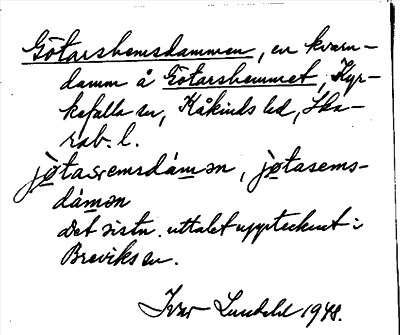 Götarshemsdammen, en kvarn-
damm å Götarshemmet, Kyr-
kefalla sn, Kåkinds hd, Ska-
rab. l.
jøtaṣemsdámən, jøtasems-
dámən
Det sistn. uttalet upptecknat i
Breviks sn.
Ivar Lundahl 1948.